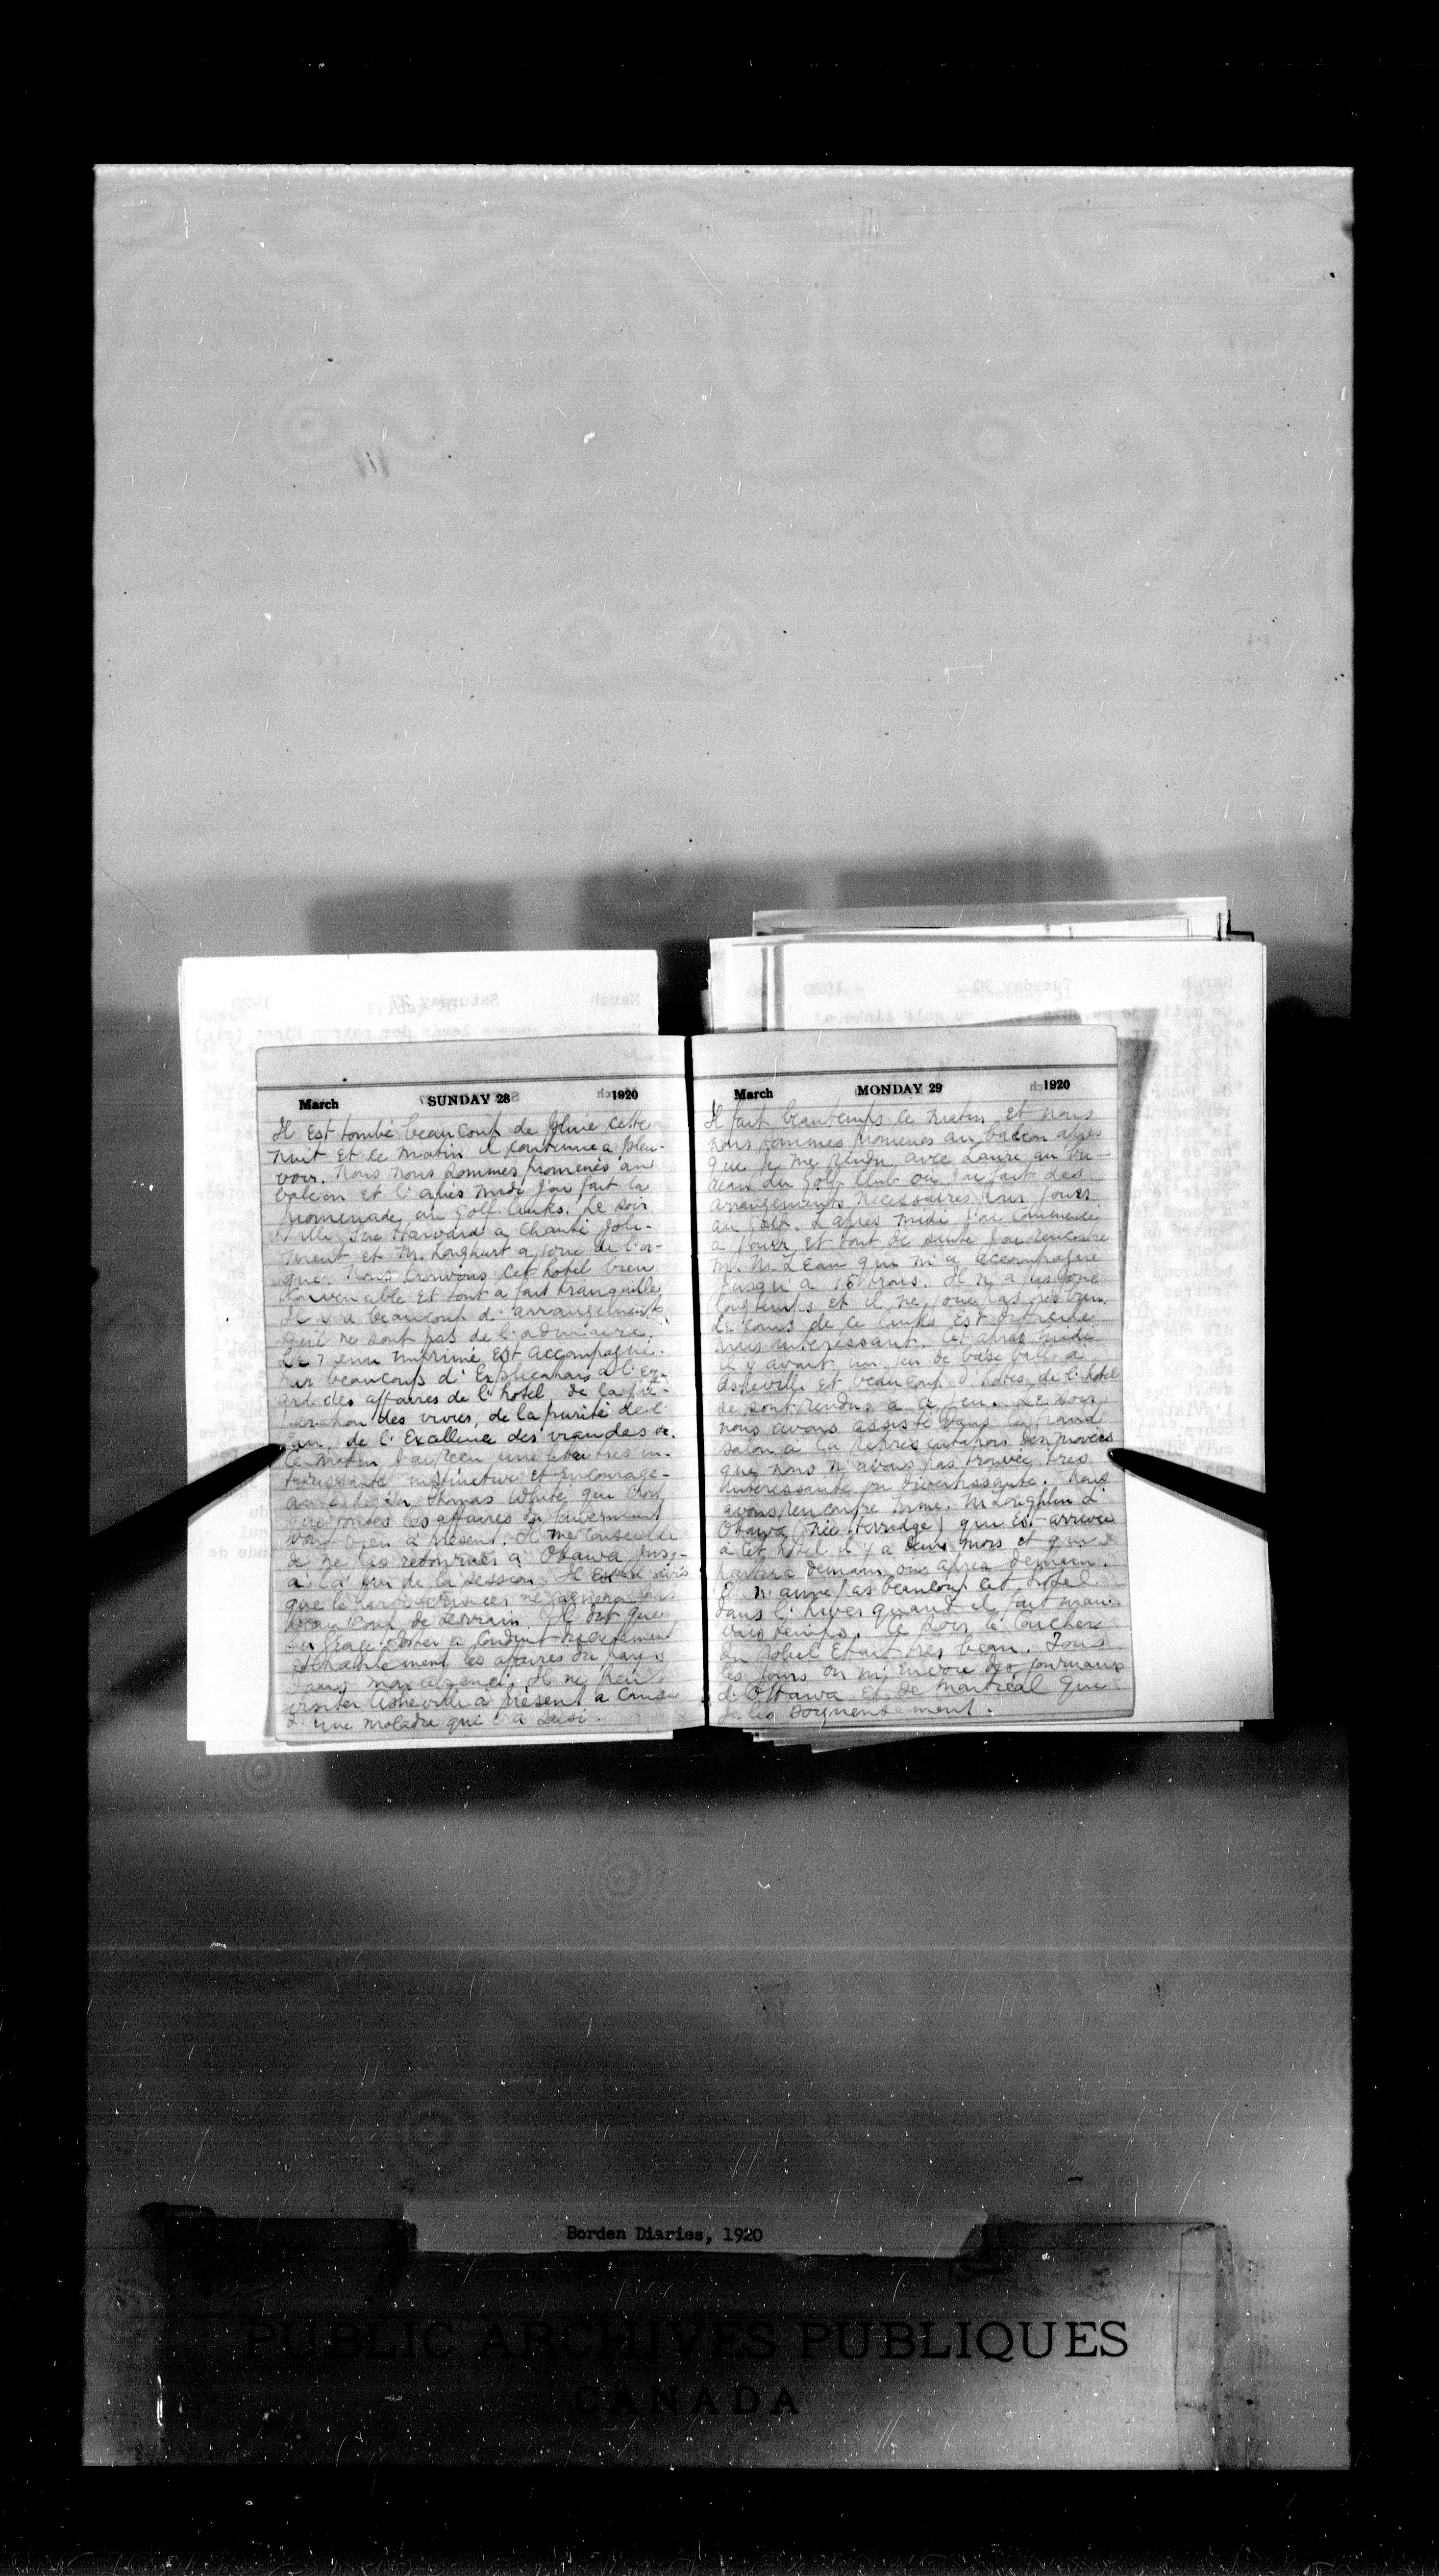 March SUNDAY 28 1920
Il est tombé beaucoup de pluie cette
nuit et ce matin il continue a pleu-
voir. Nous nous sommes promenés au
balcon et l'après midi j'ai fait la
promenade au Golf Links. Le soir
Mlle Sue Harvard a chanté joli-
ment et M. Longhurst a joué de l'or-
gue. Nous trouvons cet hotel bien
convenable et tout a fait tranquille
Il y a beaucoup d'arrangements
qui ne sont pas de l'ordinaire.
Le menu imprimé est accompagné
par beaucoup d'explications a l'eg-
ard des affaires de l'hotel de la pré-
paration des vivres, de la purité de l'
eau, de l'excellence des viandes &c.
Ce matin j'ai reçu une lettre tres in-
teressante instructive et encourage-
ante de Sir Thomas White qui croit
que toutes les affaires du gouvernement
vont bien à present. Il me conseille
de ne pas retourner à Ottawa jusq-
a la fin de la session. Il est d'avis
que le
beaucoup de terrain. Il dit que
Sir George Foster a conduit
et habilement les affaires du pays
dans mon absence. Il ne peut
visiter Asheville à présent a cause
d'une maladie qui l'a saisi.
March MONDAY 29 1920
Il fait beau temps ce matin et nous
nous sommes promenés au balcon après
que je me rendu avec Laura au bu-
reau du Golf Club où j'ai fait des
arrangements necessaires pour jouer
au Golf. L'après midi j'ai commencé
a jouer et tout de suite j'ai rencontré
M. McLean qui m'a accompagné
jusqu'a 15 trous. Il n'a pas joué
longtemps et il ne joue pas très bien.
Le cours de ce links est difficile
mais interessant. Cet après midi
il y avait un jeu de base ball a
Asheville et beaucoup d'hotes de l'hotel
se sont rendus a ce jeu. Le soir
nous avons assisté dans le grand
salon a la representation des movies
que nous n'avons pas trouvée tres
interessante ou divertissante. Nous
avons rencontré Mme. McLoughlin d'
Ottawa (née ) qui est arrivée
à cet hotel il y a deux mois et qui
partira demain ou après demain.
n'aime pas beaucoup cet hotel
dans l'hiver quand il fait mau-
vais temps. Ce soir le coucher
du soleil etait tres beau. Tous
les jours on m'envoie des journaux
d'Ottawa et de Montreal que
je lis soigneusement.
Borden Diaries, 1920
PUBLIC ARCHIVES PUBLIQUES
CANADA